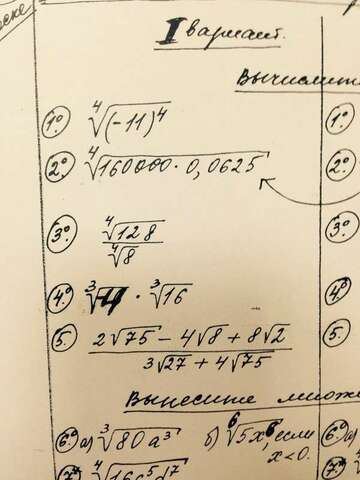 I вариант.
Вычислить
1.° ⁴√(-11)⁴
2.° ⁴√160000 · 0,0625
3.° ⁴√128 / ⁴√8
4.° ³√4 · ³√16
5. 2√75 - 4√8 + 8√2 / 3√27 + 4√75
Вынесите множ
6.° а) ³√80a³ б) ⁶√5x⁶, если x<0.
7.° ⁴√16c⁵d⁷
1.°
2.°
3.°
4.°
5.
6.°
7.°